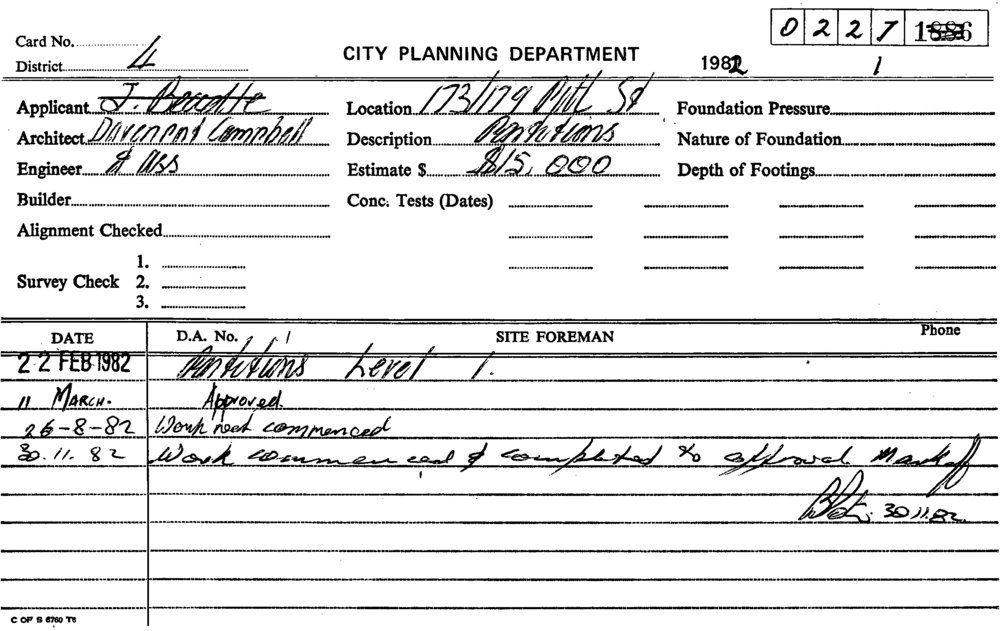 0 2 2 7 1886
Card No.
CITY PLANNING DEPARTMENT
District 4
1982 1
Applicant J. Beadtte
Location 173/179 Pitt St
Foundation Pressure
Architect Davenport Campbell
Description Partitions
Nature of Foundation
Engineer & Ass
Estimate $ $15,000
Depth of Footings
Builder
Conc. Tests (Dates)
Alignment Checked
Survey Check
1.
2.
3.
DATE D.A. No. SITE FOREMAN Phone
22 FEB 1982 Partitions Level 1.
11 MARCH. Approved.
26-8-82 Work not commenced
30.11.82 Work commenced & completed to approval Mark off
30.11.82.
C OF S 6760 T6